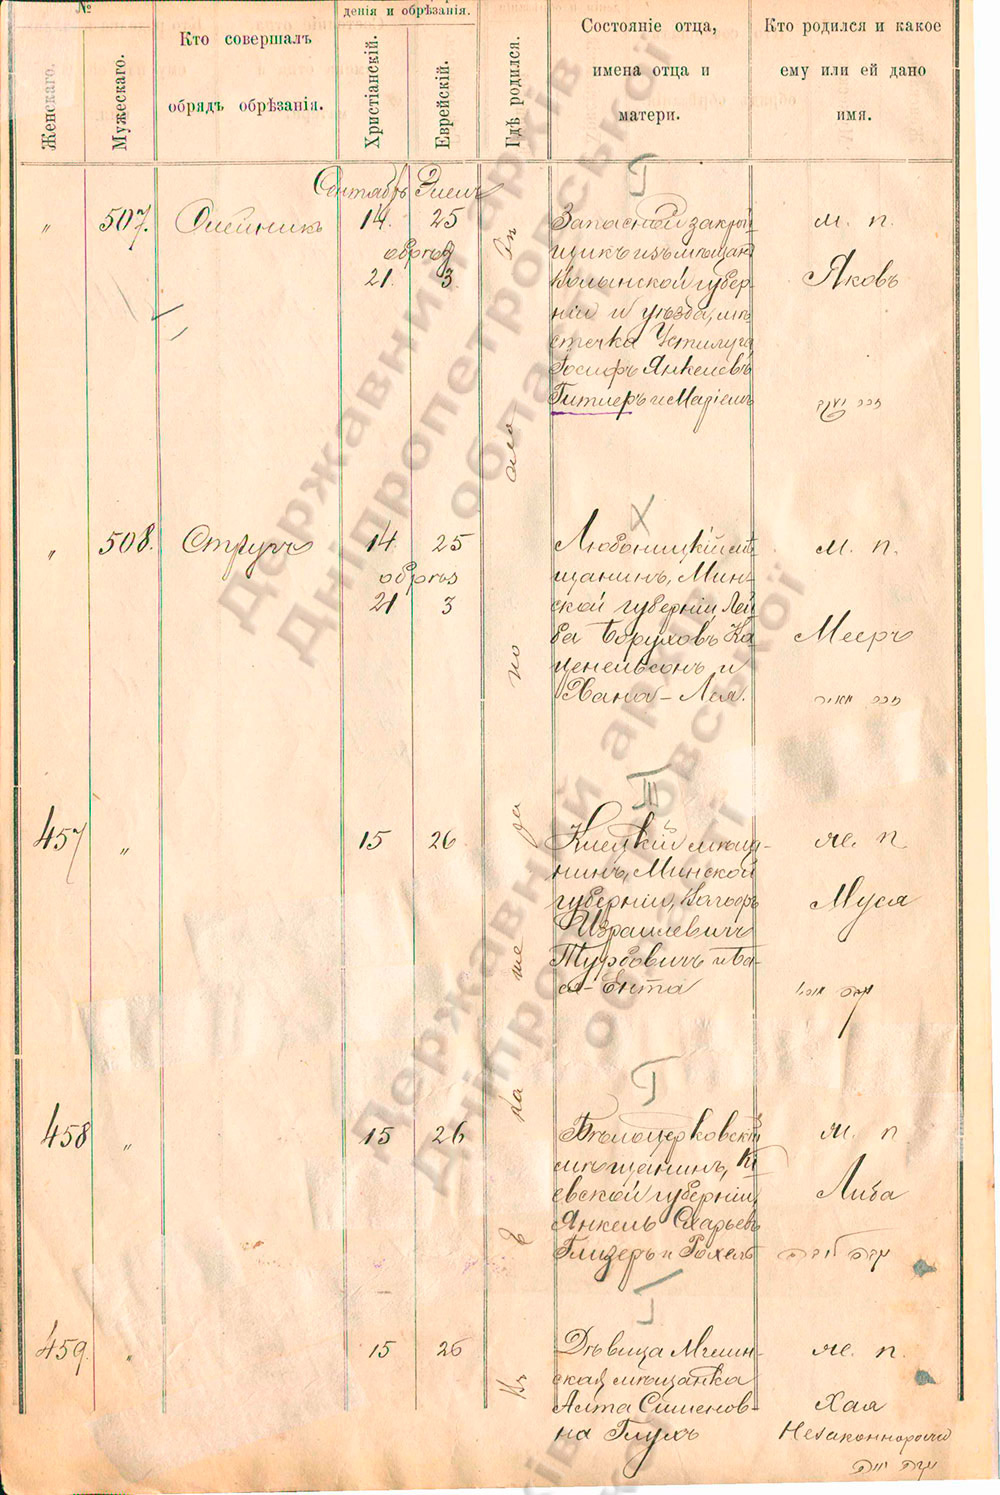 №
Женскаго.
Мужескаго.
Кто совершалъ
обрядъ обрѣзанія.
денія и обрѣзанія.
Христіанскій.
Еврейскій.
Гдѣ родился.
Состояніе отца,
имена отца и
матери.
Кто родился и какое
ему или ей дано
имя.
Сентябрь
"
507.
Олейникъ
14. 25
обрѣз
21. 3.
I
Запасной закрой
щикъ изъ мѣщанъ
Волынской губер-
ніи и уѣзда, мѣ-
стечка Устилуга
Іосифъ Янкелевъ
Гитлеръ и Маріемъ
м. п.
Яковъ
"
508.
Стругъ
14. 25
обрѣз
21 3
X
Любоницкій мѣ-
щанинъ, Мин-
ской губерніи Лей
ба Боруховъ Ка
ценельсонъ и
Хана-Лея.
м. п.
Мееръ
457
"
15 26
III
Клецкій мѣща-
нинъ, Минской
губерніи,
Израилевичъ
Турбовичъ и Ба-
ся-Ента
ж. п
Муся
458
"
15 26
I
Бѣлоцерковскій
мѣщанинъ, Кі
евской губерніи,
Янкель
Глизеръ и Рохель
ж. п.
Либа
459.
"
15 26
Дѣвица Мглин-
ская мѣщанка
Алта Сименов-
на Глухъ
ж. п.
Хая
Незаконнорожд
Державний архів
Дніпропетровської
області
Державний архів
Дніпропетровської
області